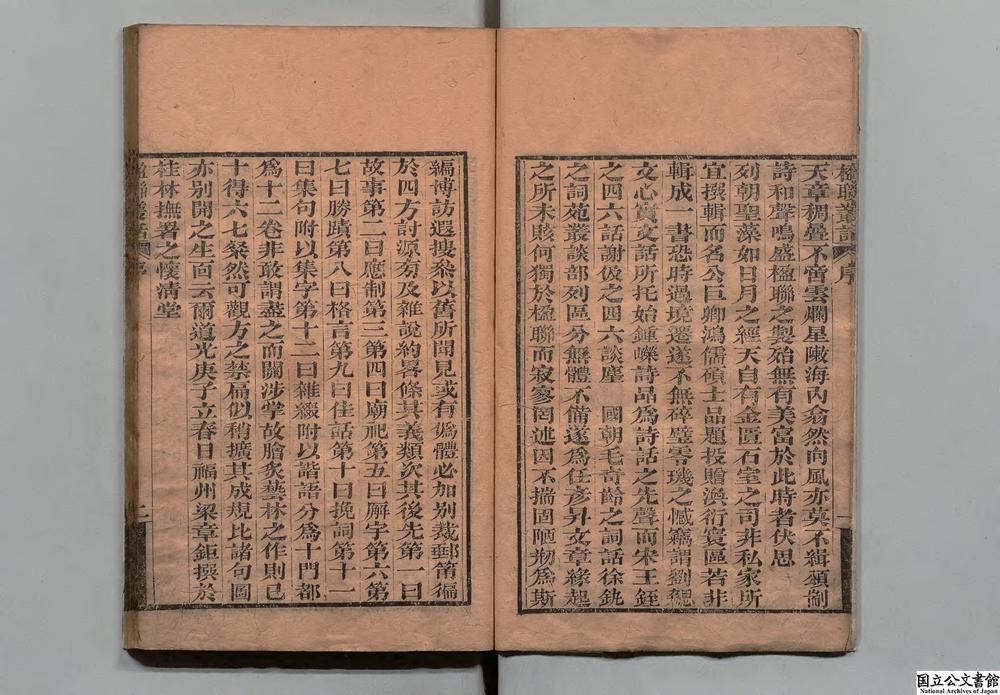 楹聯叢話 序
天章稠疊不啻雲爛星敶海內翕然向風亦莫不緝頌劀
詩和聲鳴盛楹聯之製殆無有美富於此時者伏思
列朝聖藻如日月之經天自有金匱石室之司非私家所
宜撰輯而名公巨卿鴻儒碩士品題投贈渙衍寰區若非
輯成一書恐時過境遷遂不無碎璧零璣之憾竊謂劉勰
文心實文話所托始鍾嶸詩品為詩話之先聲而宋王銍
之四六話謝伋之四六談麈 國朝毛奇齡之詞話徐釚
之詞苑叢談部列區分無體不備遂為任彥昇文章緣起
之所未賅何獨於楹聯而寂寂罔述因不揣固陋剏為斯
編博訪遐搜叅以舊所聞見或有偽體必加別裁郵筩徧
於四方討源旁及雜說約畧條其義類次其後先第一曰
故事第二曰應制第三第四曰廟祀第五曰廨宇第六第
七曰勝蹟第八曰格言第九曰佳話第十曰挽詞第十一
曰集句附以集字第十二曰雜綴附以諧語分為十門都
為十二卷非敢謂盡之而關涉掌故膾炙藝林之作則已
十得六七粲然可觀方之禁扁似稍擴其成規比諸句圖
亦別開之生面云爾道光庚子立春日福州梁章鉅撰於
桂林撫署之懷清堂
楹聯叢話 序 二
国立公文書館
National Archives of Japan